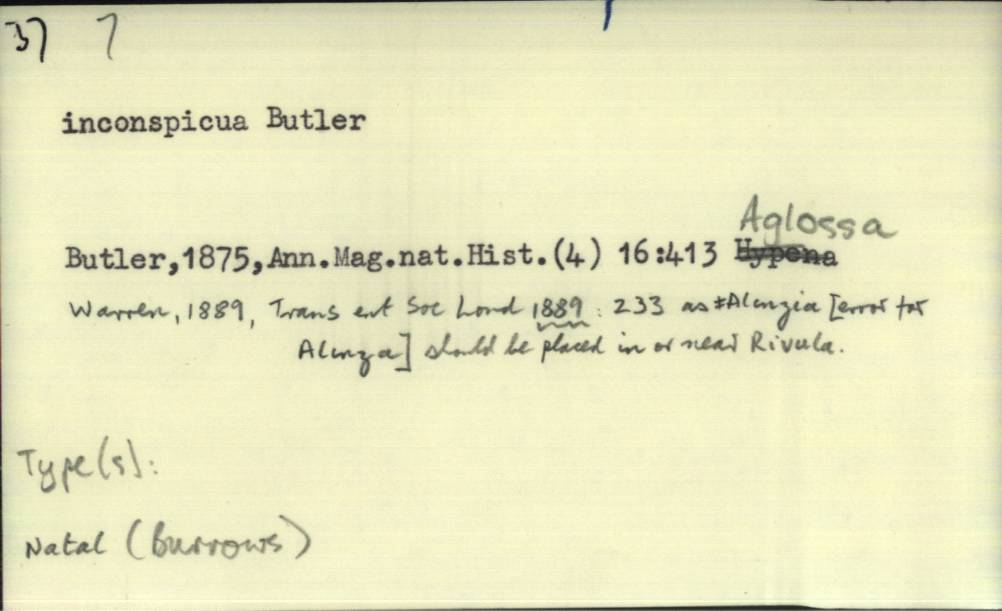 37 7
inconspicua Butler
Aglossa
Butler,1875,Ann.Mag.nat.Hist.(4) 16:413 Hypena
Warren, 1889, Trans ent Soc Lond 1889: 233 as ‡Alenzia [error for
Alenza] should be placed in or near Rivula.
Type(s):
Natal (Burrows)